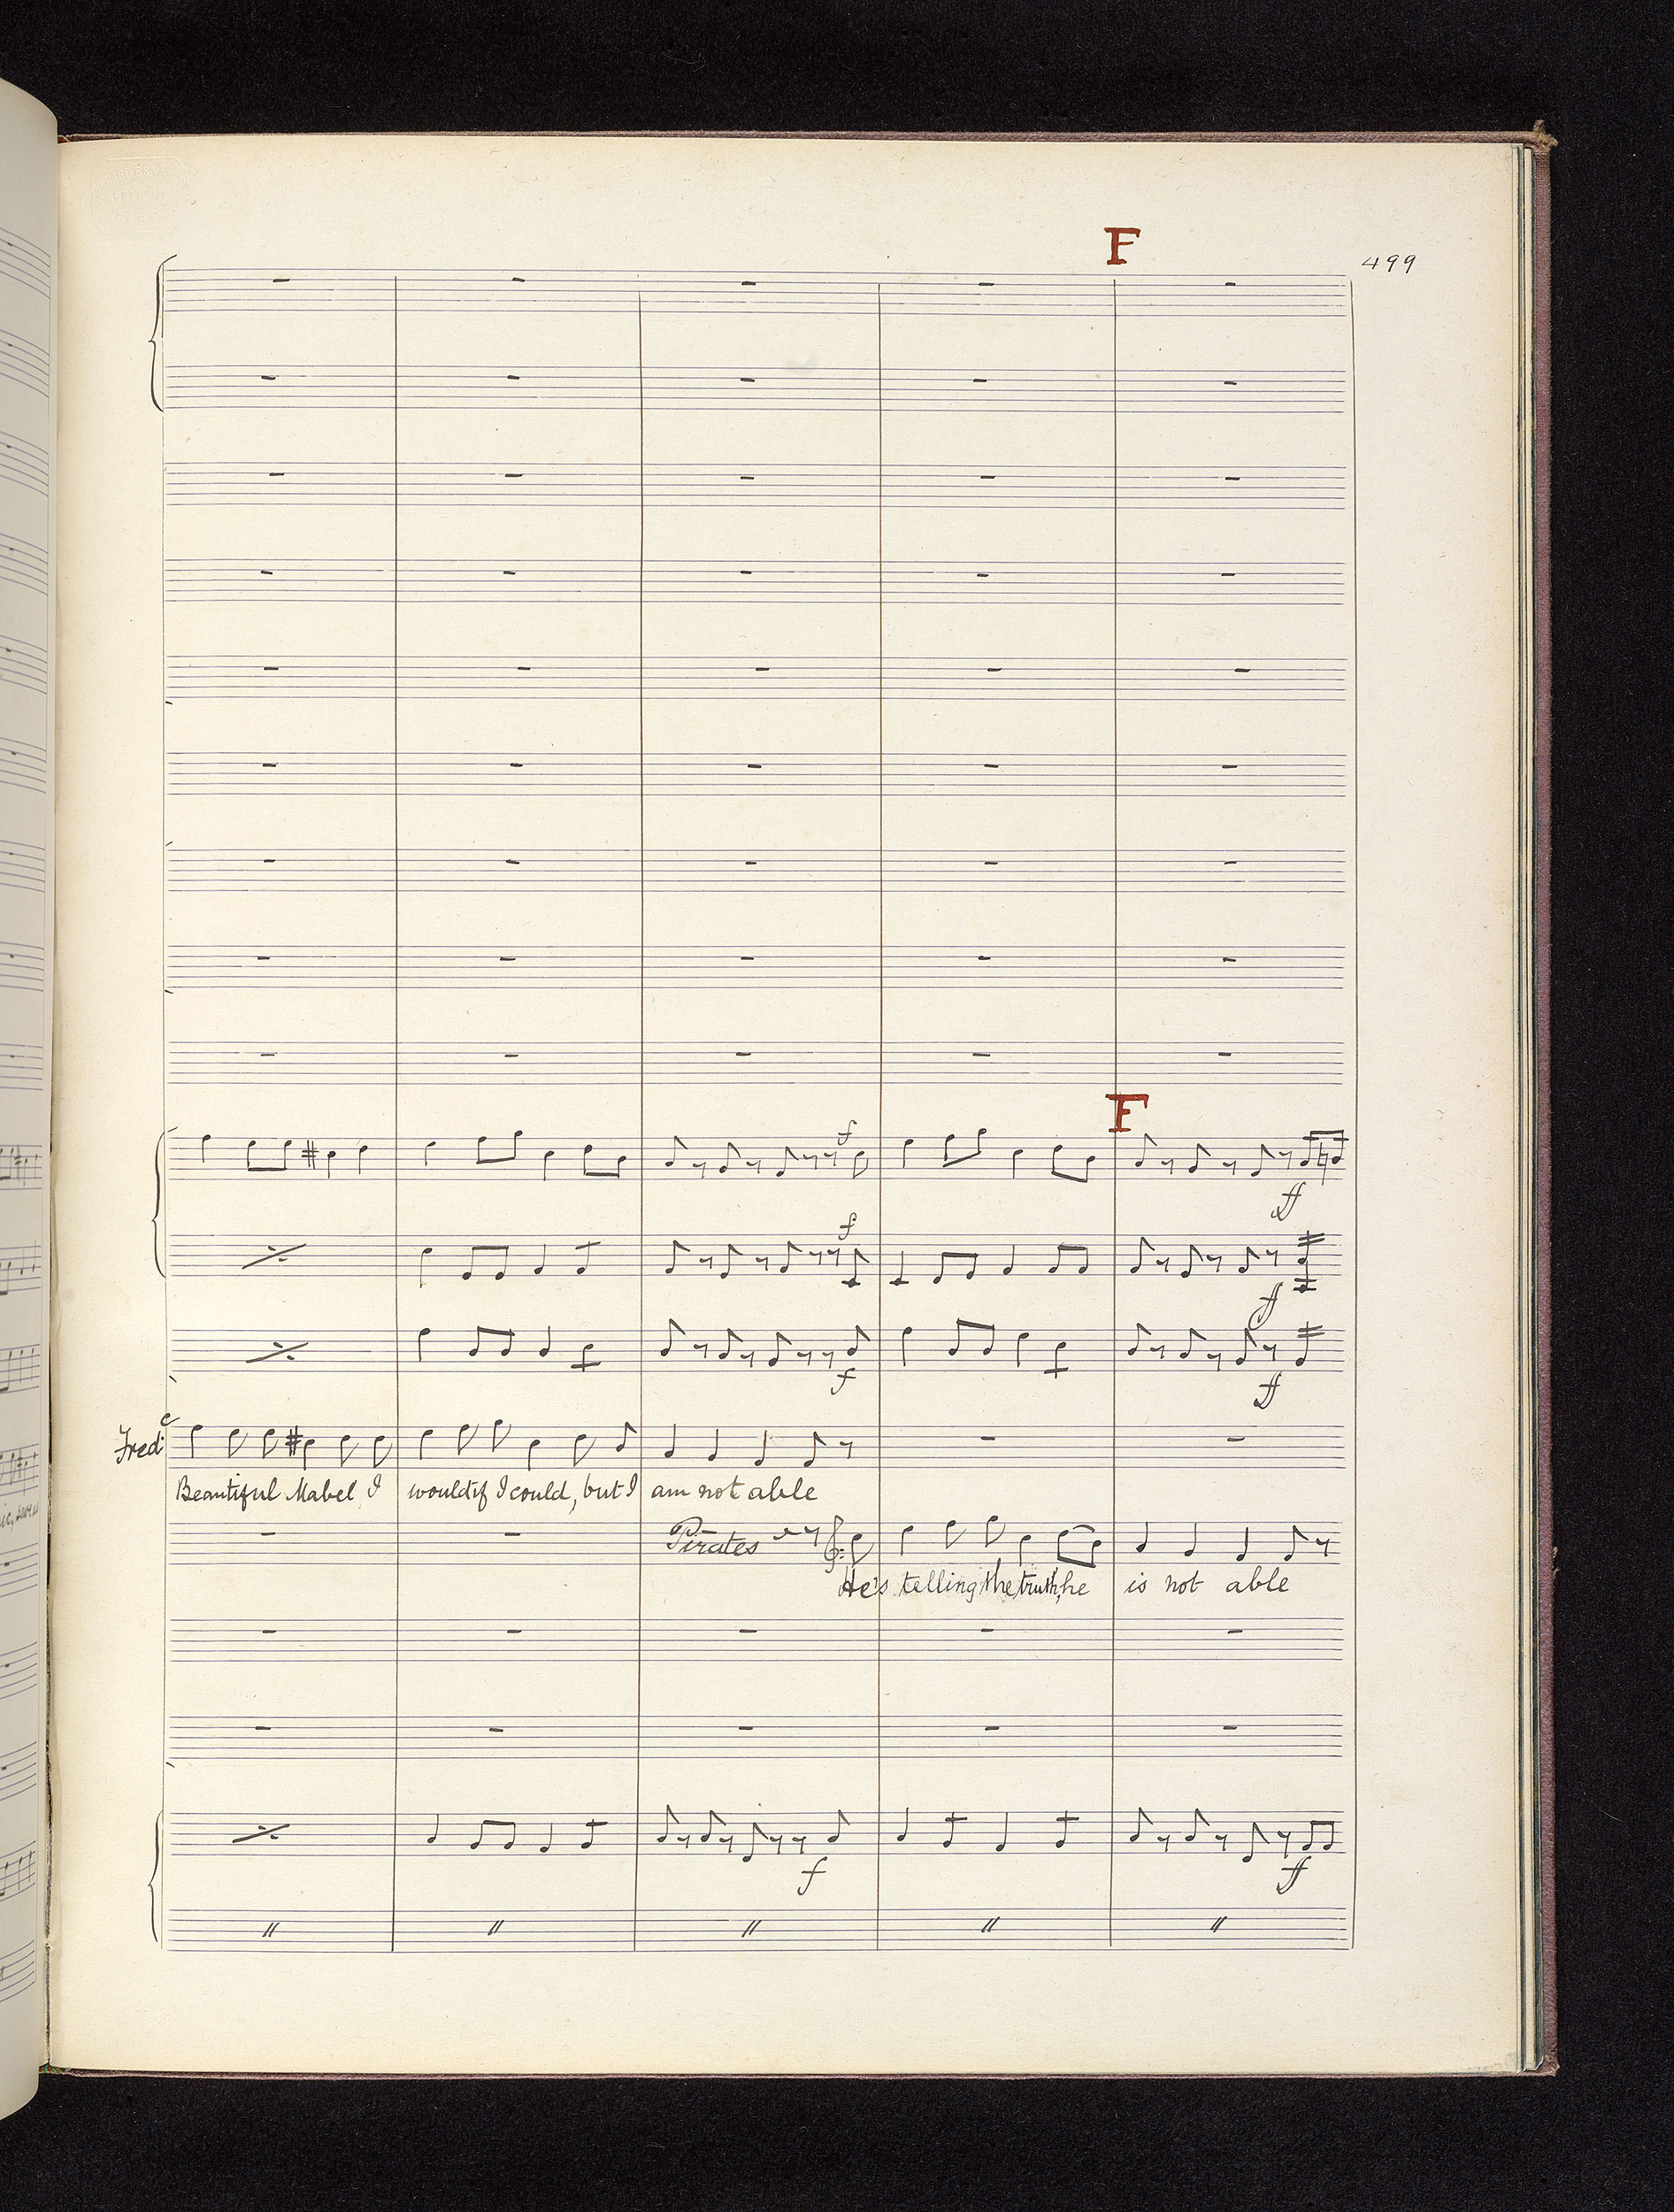 F
499
F
f
ff
f
ff
f
ff
Fred.c
Beautiful Mabel I would if I could, but I am not able
Pirates
He's telling the truth, he is not able
f
ff